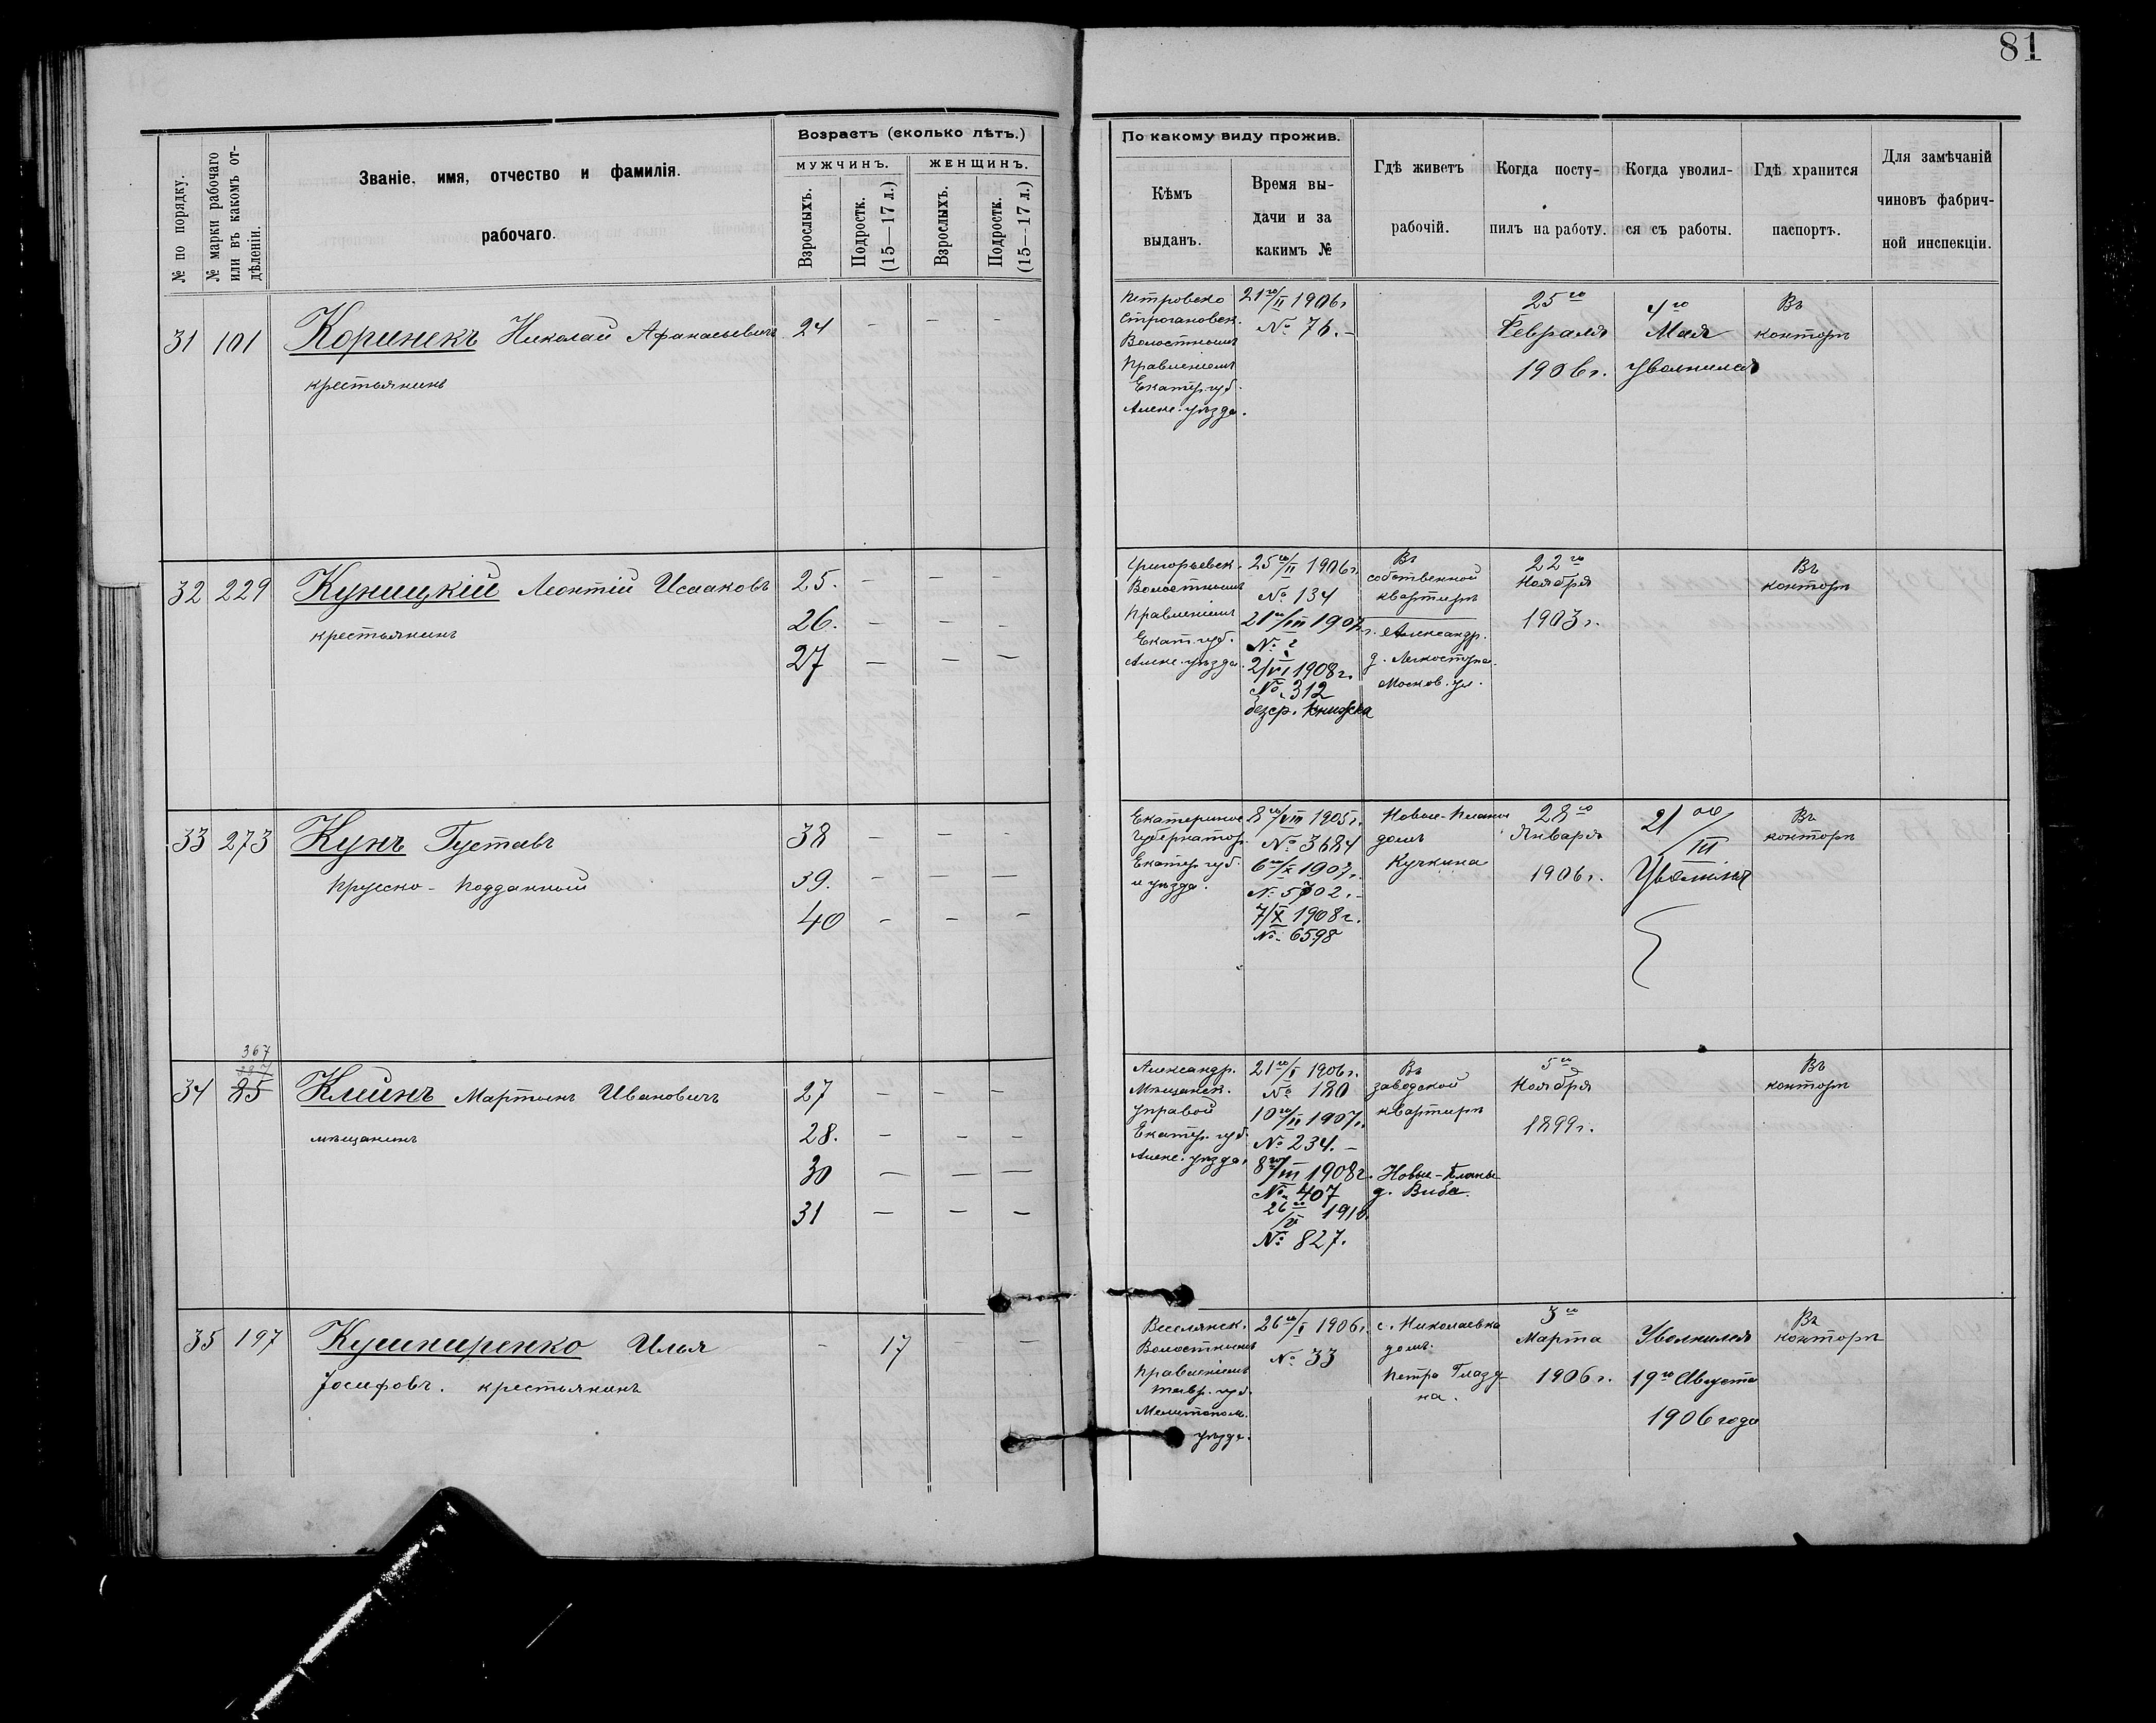 81
№ по порядку.
№ марки рабочаго или въ какомъ отдѣленіи.
Званіе, имя, отчество и фамилія
рабочаго.
Возрастъ (сколько лѣтъ.)
МУЖЧИНЪ.
ЖЕНЩИНЪ.
Взрослыхъ.
Подростк. (15—17 л.)
Взрослыхъ.
Подростк. (15—17 л.)
По какому виду прожив.
Кѣмъ
выданъ.
Время вы-
дачи и за
какимъ №
Гдѣ живетъ
рабочій.
Когда посту-
пилъ на работу.
Когда уволил-
ся съ работы.
Гдѣ хранится
паспортъ.
Для замѣчаній
чиновъ фабрич-
ной инспекціи.
31 101 Коринекъ Николай Афанасьевичъ 24 — — —
крестьянинъ
Петровско
Строгановск.
Волостнымъ
Правленіемъ
Екатер. губ.
Алекс. уѣзда.
21го/II 1906г
№ 76.—
25го
Февраля
1906г.
4го
Мая
уволился
Въ
конторѣ
32 229 Куницкій Леонтій Исааковъ 25. — — —
крестьянинъ
26. — — —
27 — — —
Григорьевск.
Волостнымъ
Правленіемъ
Екат. губ.
Алекс. уѣзда.
25го/II 1906г.
№ 134
21го/III 1907г.
№ ?
2/VI 1908г.
№ 312
безср. книжка
Въ
собственной
квартирѣ
Александр.
д. Легкоступа.
Москов. ул.
22го
Ноября
1903г.
Въ
конторѣ
33 273 Кунъ Густавъ 38 — — —
Прусско-Подданный
39. — — —
40 — — —
Екатеринос
Губернатор.
Екатер. губ.
и уѣзда.
8го/VIII 1905г.
№ 3684
6го/X 1907г.
№ 5702.—
7/X 1908г.
№ 6598
Новые-Планы
домъ
Кучкина
28го
Января
1906г.
21го/III
Уволился
Въ
конторѣ
367
34 85 Клейнъ Мартынъ Ивановичъ 27 — — —
мѣщанинъ
28. — — —
30 — — —
31 — — —
Александр.
Мѣщанск.
Управой
Екатер. губ.
Алекс. уѣзда.
21го/I 1906г.
№ 180
10го/II 1907г.
№ 234.—
8го/III 1908г.
№ 407
26го/VI 1910.
№ 827.
Въ
заводской
квартирѣ
Новые-Планы
д. Виба.
5го
Ноября
1899г.
Въ
конторѣ
35 197 Кушниренко Илья — 17 — —
Іосифовъ. крестьянинъ
Веселянск.
Волостнымъ
Правленіемъ
Тавр. губ.
Мелитопол.
уѣзда.
26го/I 1906г.
№ 33
с. Николаевка
домъ
Петра Гладд
ка.
3го
Марта
1906г.
Уволился
19го Августа
1906 года
Въ
конторѣ